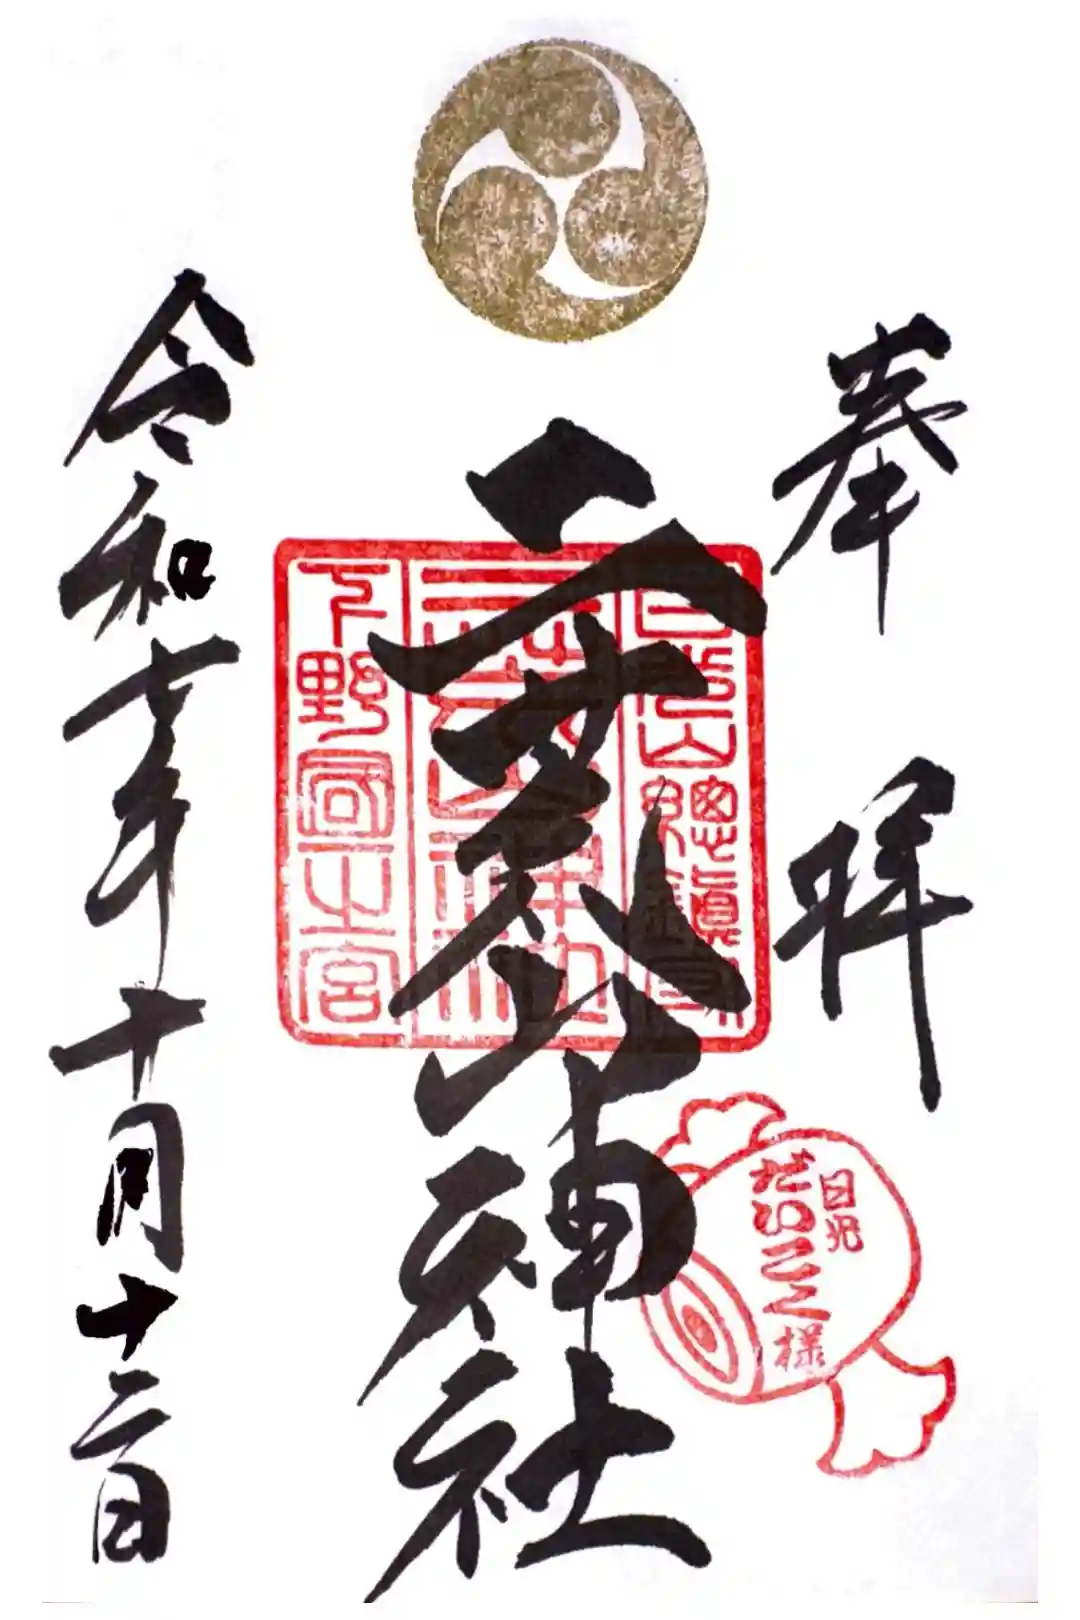 奉拝
日光山總鎮守
二荒山神社
下野國一之宮
日光
だいこく様
令和七年十月十二日